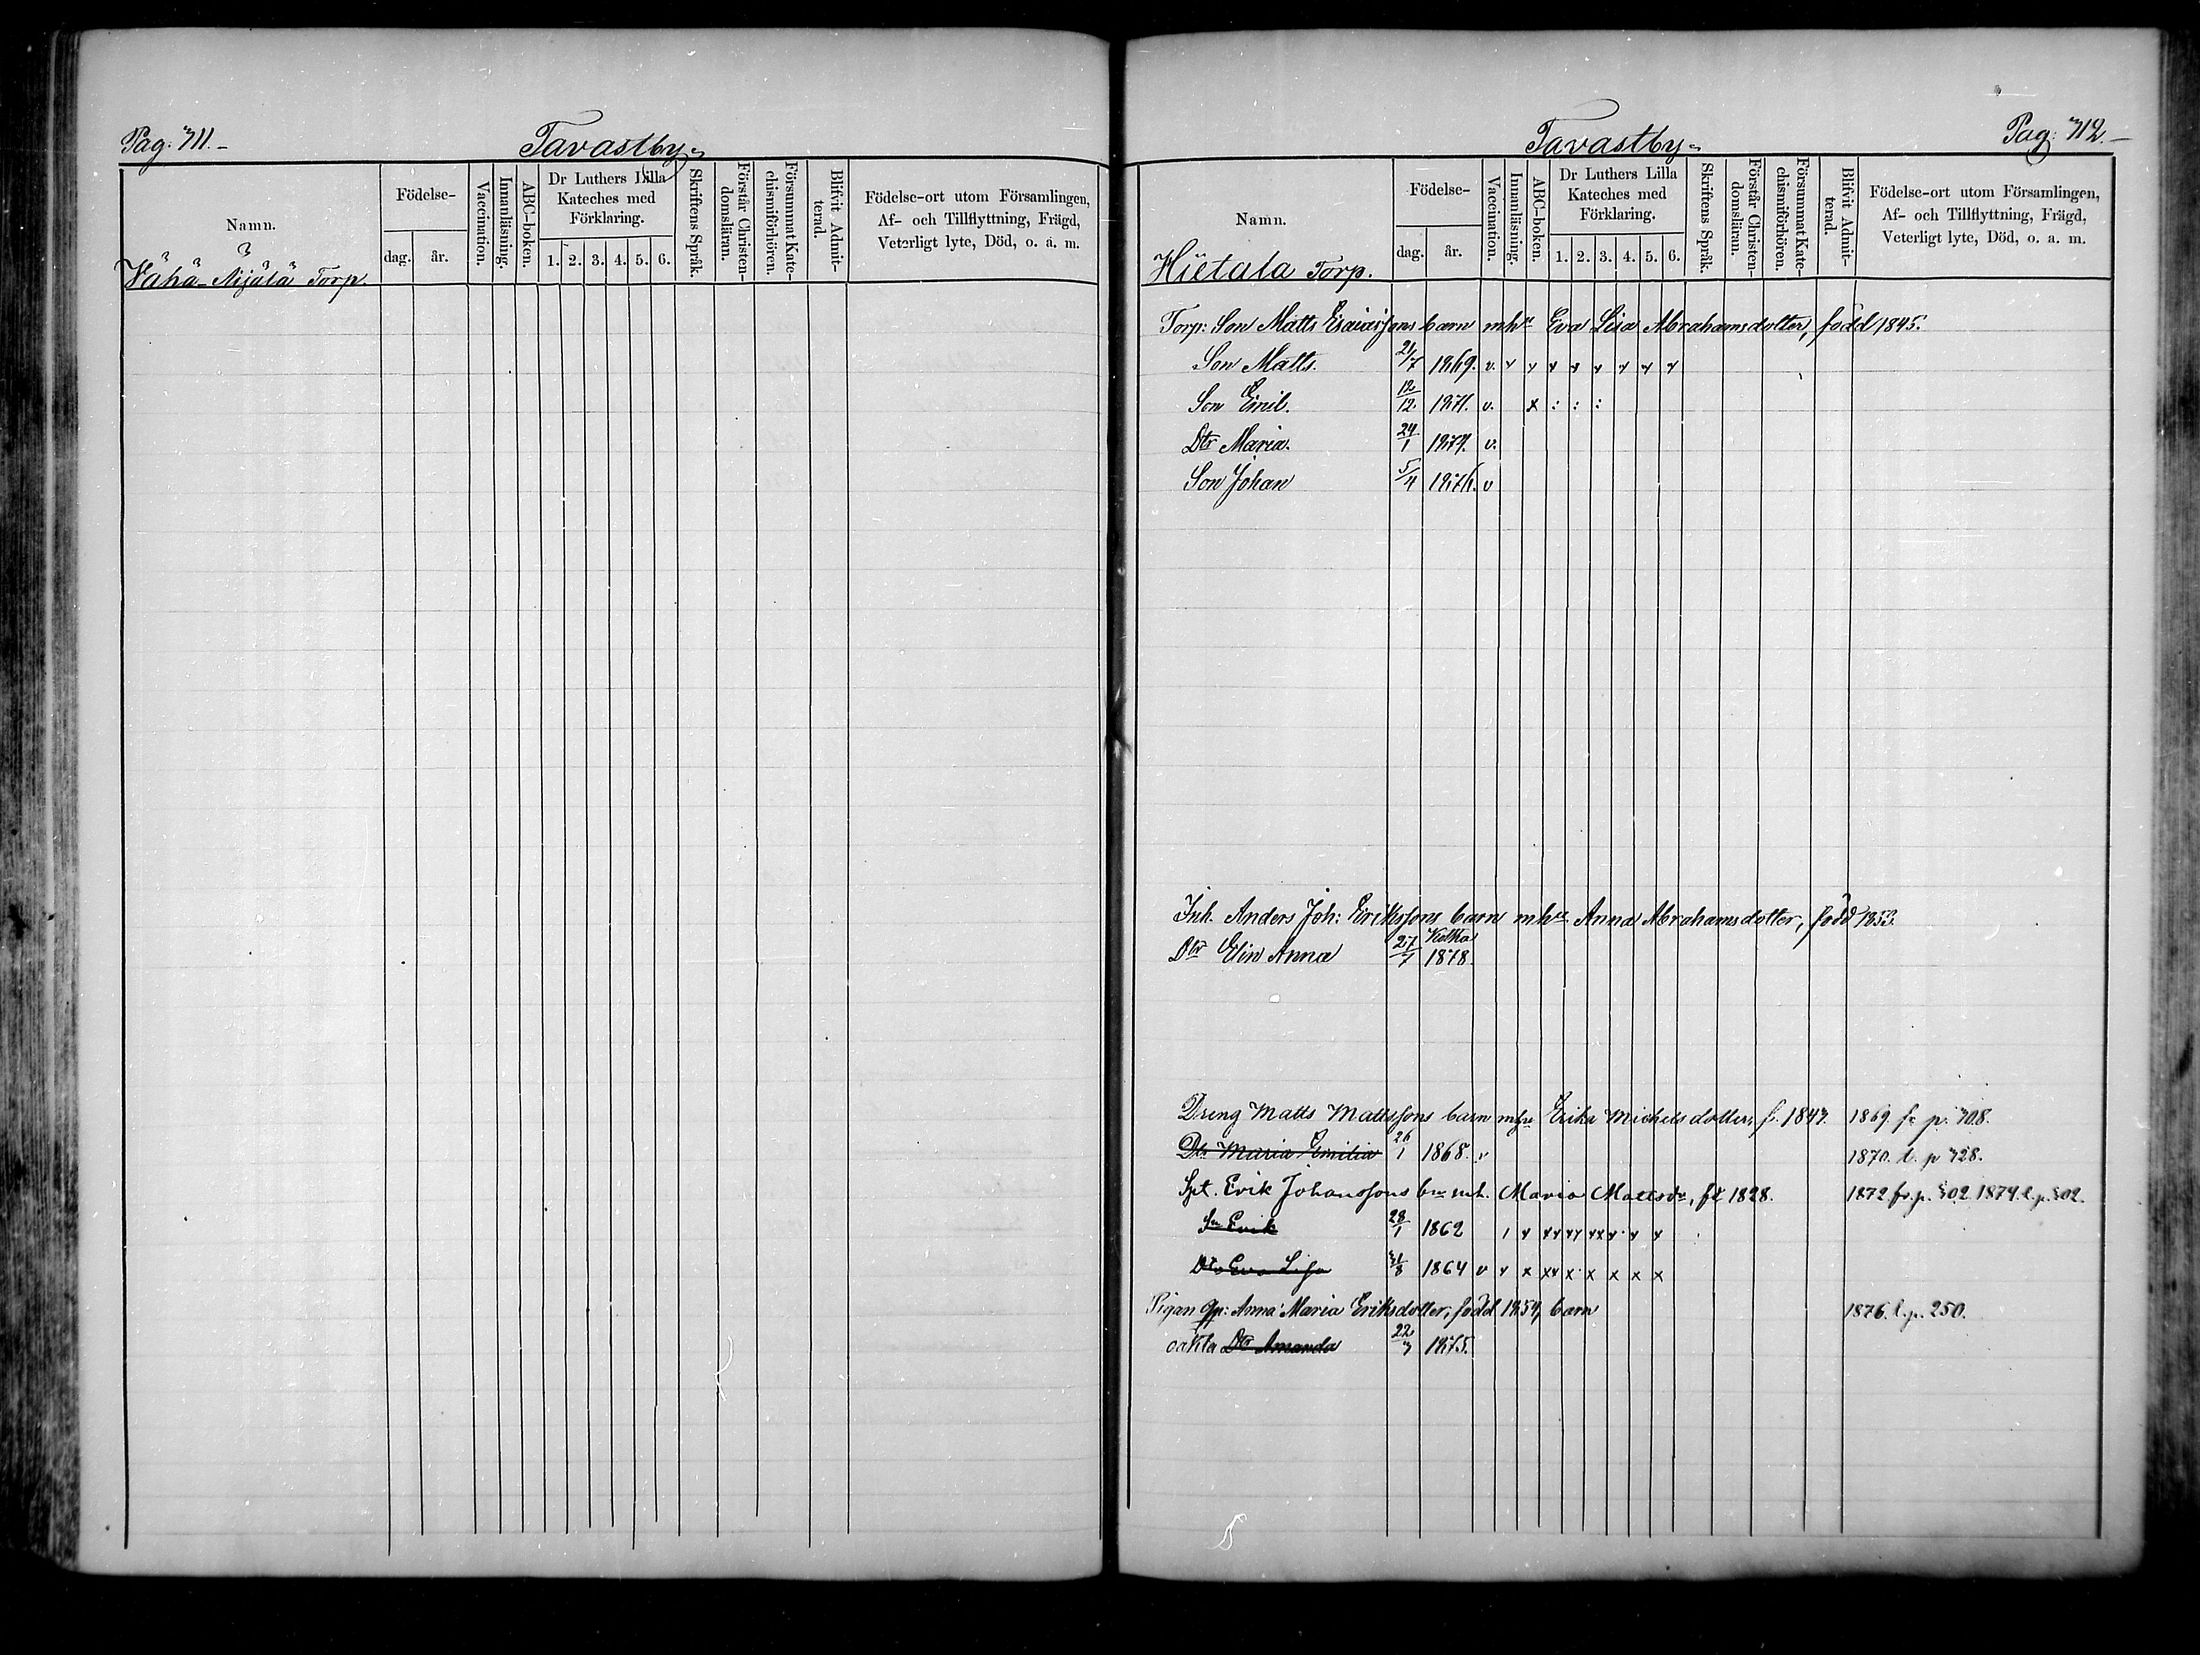 Pag. 311.
Tavastby
Namn.
Födelse-
dag. år.
Vaccination.
Innanläsning.
ABC-boken.
Dr Luthers Lilla
Kateches med
Förklaring.
1. 2. 3. 4. 5. 6.
Skriftens Språk.
Förstår Christen-
domsläran.
Försummat Kate-
chismiförhören.
Blifvit Admit-
terad.
Födelse-ort utom Församlingen,
Af- och Tillflyttning, Frägd,
Veterligt lyte, Död, o. a. m.
Vähä-Nijälä Torp.
Pag. 312.
Tavastby
Namn.
Födelse-
dag. år.
Vaccination.
Innanläsning.
ABC-boken.
Dr Luthers Lilla
Kateches med
Förklaring.
1. 2. 3. 4. 5. 6.
Skriftens Språk.
Förstår Christen-
domsläran.
Försummat Kate-
chismiförhören.
Blifvit Admit-
terad.
Födelse-ort utom Församlingen,
Af- och Tillflyttning, Frägd,
Veterligt lyte, Död, o. a. m.
Hietala Torp.
Torp: Son Matts Esaiassons barn mhu Eva Lisa Abrahamsdotter, född 1845.
Son Matts. 21/7 1869. v.
Son Emil. 12/12 1871. v. x : : :
Dtr Maria. 24/1 1874. v.
Son Johan 5/4 1876. v
Inh. Anders Joh: Erikssons barn mhu Anna Abrahamsdotter, född 1853.
Dtr Elin Anna 27/7 1878.
Dreng Matts Mattssons barn mhu Erika Michelsdotter, f. 1843. 1869. fr p. 308.
Dtr Maria Emilia 26/1 1868. v 1870. t. p 328.
Spt. Erik Johanssons bn mh. Maria Mattsdr, fd 1828. 1872 fr. p. 302. 1874. t. p. 302.
Sn Erik 28/1 1862
Dtr Eva Lisa 31/8 1864 v
Pigan Anna Maria Eriksdotter, född 1854, barn 1876. t. p. 250.
oäkta Dtr Amanda 22/3 1875.